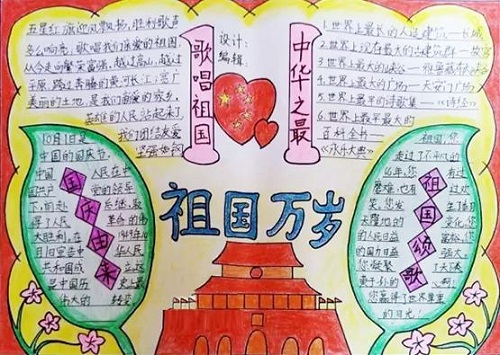 五星红旗迎风飘扬,胜利歌声
多么响亮,歌唱我们亲爱的祖国,
从今走向繁荣富强,越过高山,越过
平原,跨过奔腾的黄河长江;宽广
美丽的土地,是我们亲爱的家乡,
英雄的人民站起来了
我们团结友爱
坚强如钢
歌唱祖国
设计:
编辑:
中华之最
1.世界上最长的人造建筑——长城
2.世界上现存最大的古建筑群——故宫
3.世界上最大的峡谷——雅鲁藏布
4.世界上最大的广场——天安门广场
5.世界上最早的诗歌集——《诗经》
6.世界上最早最大的
百科全书——
《永乐大典》
祖国万岁
10月1日是
中国的国庆节。
中国人民在中
国共产党的领导
下,前赴后继,取
得了人民革命的伟
大胜利,在1949年10
月1日宣告中华人民
共和国成立
是中国历史上最
伟大的转变
国庆由来
祖国,您
走过了不平凡的
祖国颂歌
您赢得了世界尊重
的目光!